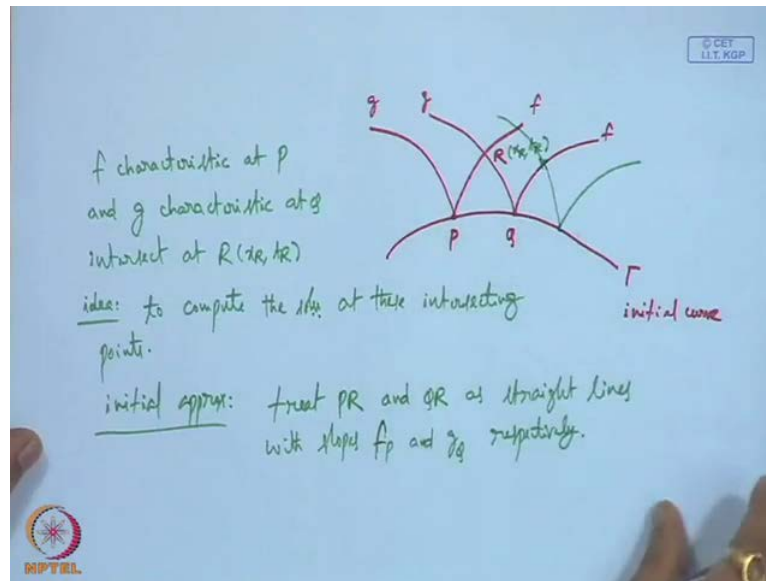 © CET
I.I.T. KGP
g g f f
R (xR, tR)
P Q
Γ
initial curve
f characteristic at P
and g characteristic at Q
intersect at R (xR, tR)
idea: to compute the soln. at these intersecting
points.
initial approx: treat PR and QR as straight lines
with slopes fp and gQ respectively.
NPTEL